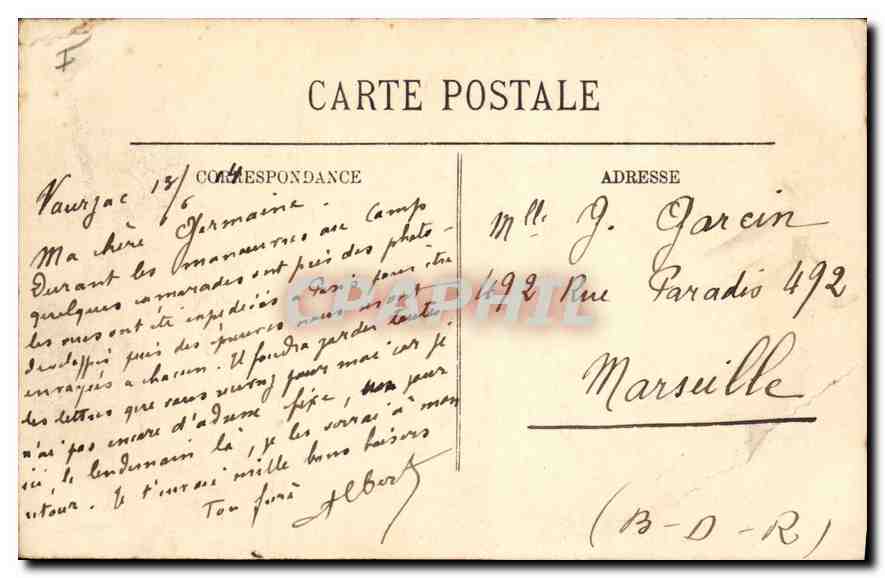 I
CARTE POSTALE
CORRESPONDANCE
Vaurzac 13/6 14
Ma chère Germaine.
Durant les manœuvres au camp
quelques camarades ont pris des photo-
les vues ont été expédiées à Paris pour être
puis des épreuves nous
envoyées à chacun. Il faudra garder toutes
les lettres que vous pour moi car je
n'ai pas encore d'adresse fixe, un jour
ici, le lendemain là, je les verrai à mon
retour. Je t'envoie mille bons baisers
Ton frère
Albert
ADRESSE
Mlle G. Garcin
492 Rue Paradis 492
Marseille
(B-D-R)
CPAPHIL